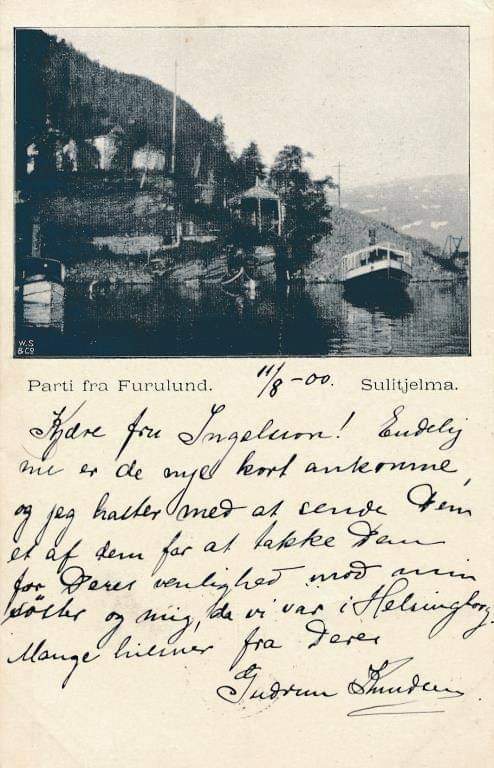 W.S
& Co
Parti fra Furulund. 11/8-00. Sulitjelma.
Kjære fru Ingelsson! Endelig
nu er de nye kort ankomne,
og jeg haster med at sende Dem
et af dem for at takke Dem
for Deres venlighed mod min
söster og mig, da vi var i Helsingborg.
Mange hilsner fra Deres
Gudrun Knudsen